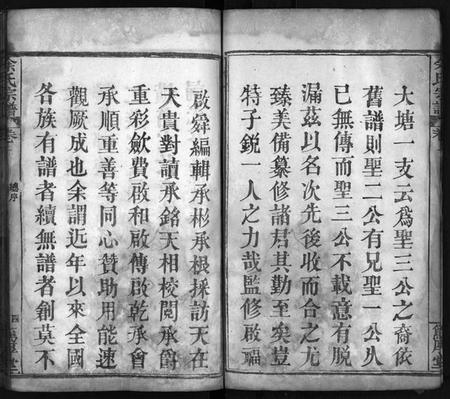 大塘一支云爲聖三公之裔依
舊譜則聖二公有兄聖一公久
已無傳而聖三公不載意有脱
漏茲以名次先後收而合之尤
臻美備纂修諸君其勤至矣豈
特子銳一人之力哉監修啟福
啟舜編輯承彬承根採訪天在
天貴對讀承銘天相校閱承爵
重彩斂費啟和啟傳啟乾承會
承順重善等同心贊助用能速
觀厥成也余謂近年以來全國
各族有譜者續無譜者創莫不
余氏宗譜
總序
四